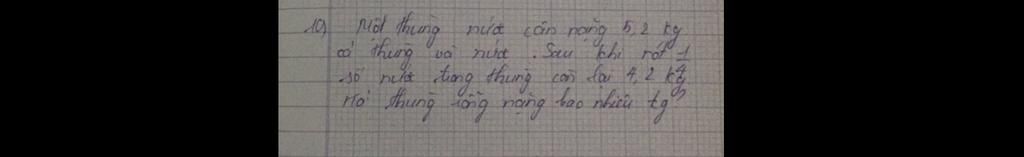 10) Một thùng nước cân nặng 5,2 kg
cả thùng và nước. Sau khi rót 1/4
số nước trong thùng còn lại 4,2 kg.
Hỏi thùng rỗng nặng bao nhiêu kg?